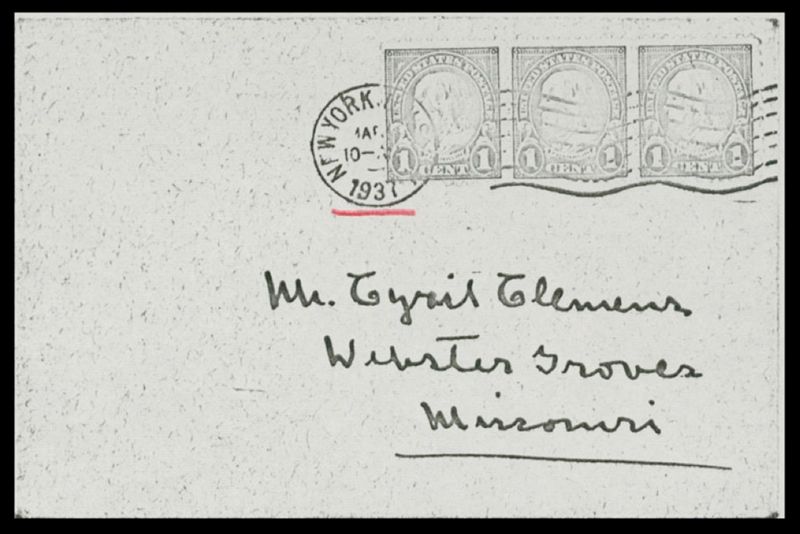 UNITED STATES POSTAGE UNITED STATES POSTAGE UNITED STATES POSTAGE
1 CENT 1 1 CENT 1 1 CENT 1
NEW YORK,
10-
1937
Mr. Cyril Clemens
Webster Groves
Missouri